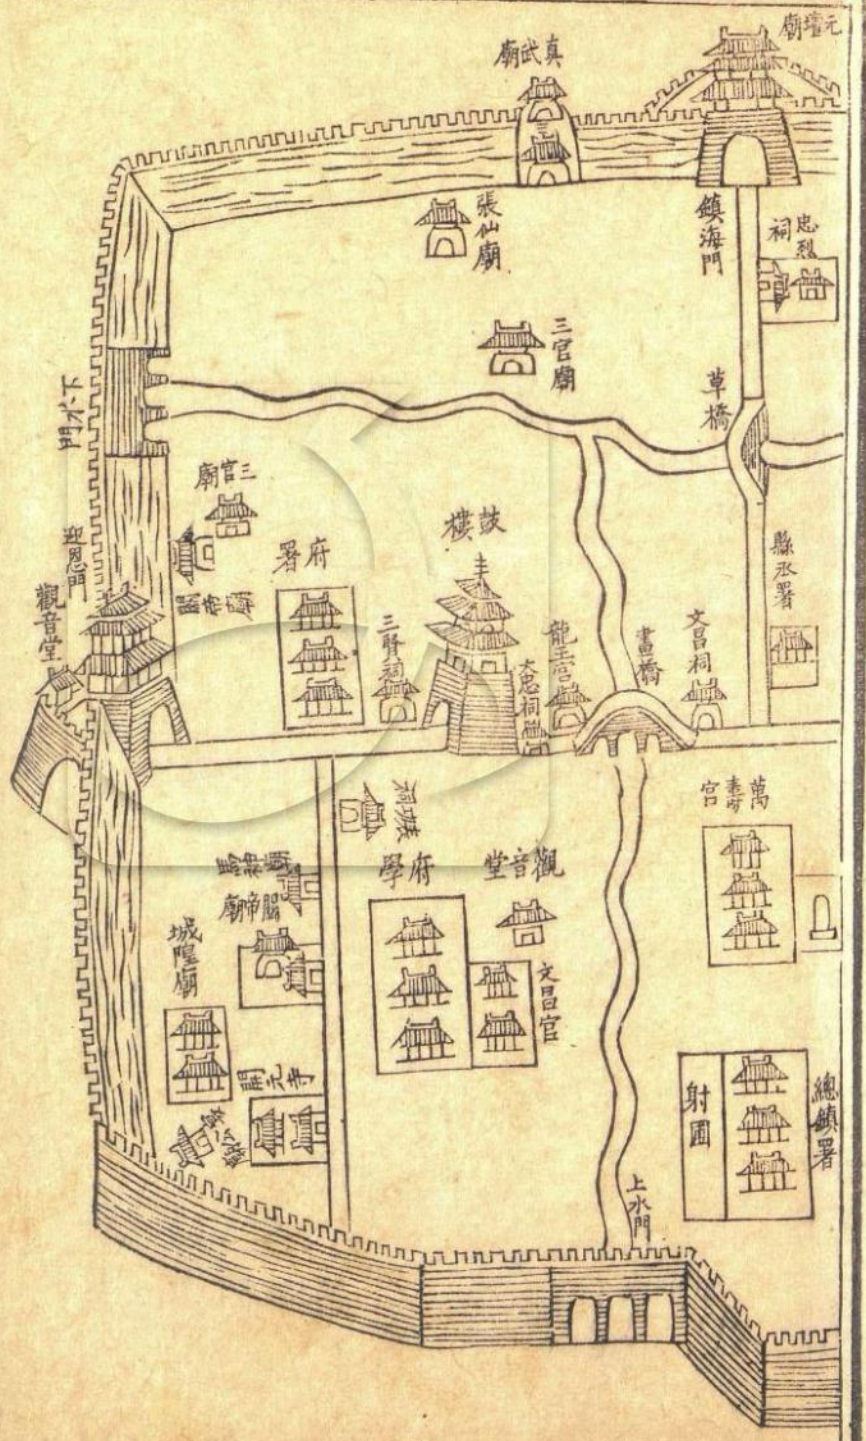 元壇廟
真武廟
鎮海門
忠烈祠
張仙廟
三官廟
草橋
下水門
三官廟
迎恩門
觀音堂
府署
鼓樓
三賢祠
大忠祠
龍王宮
畫橋
文昌祠
縣丞署
萬壽宮
府學
觀音堂
文昌宮
關帝廟
城隍廟
開元寺
射圃
總鎮署
上水門